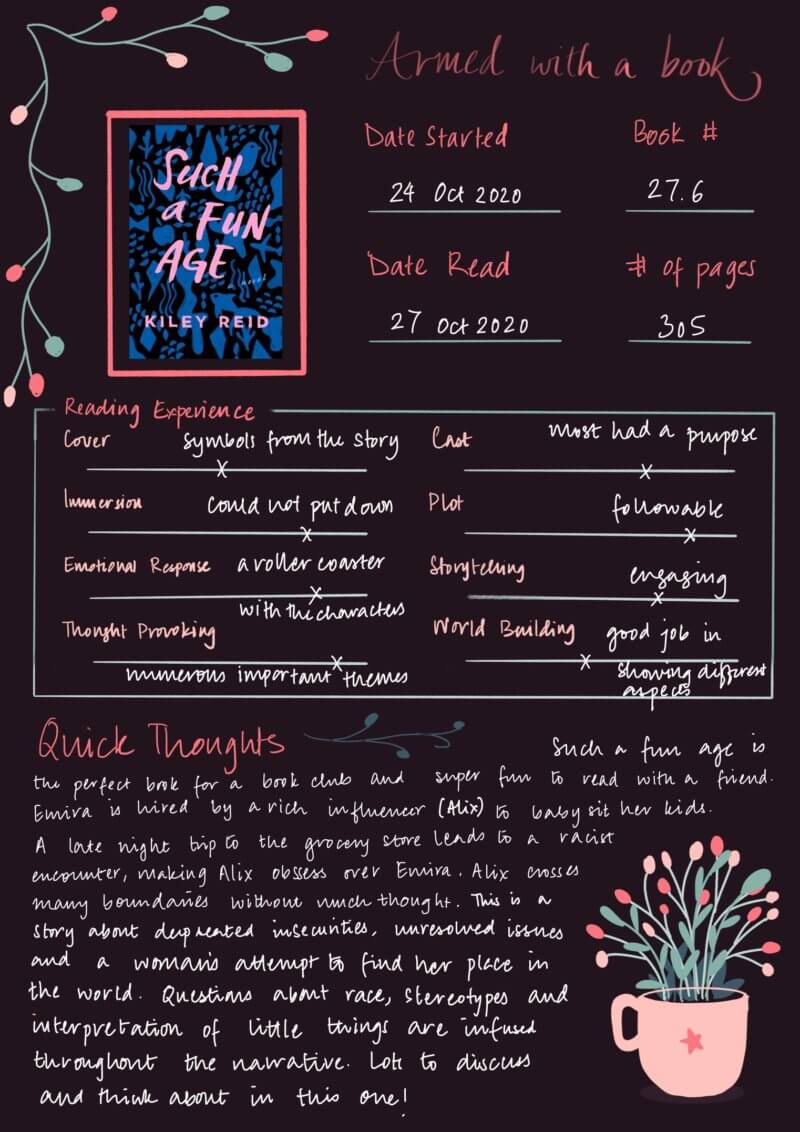 Armed with a book
SUCH
a FUN
AGE
a novel
KILEY REID
Date Started
24 Oct 2020
Book #
27.6
Date Read
27 Oct 2020
# of pages
305
Reading Experience
Cover
symbols from the story
Immersion
could not put down
Emotional Response
a roller coaster
with the characters
Thought Provoking
numerous important themes
Cast
most had a purpose
Plot
followable
Storytelling
engaging
World Building
good job in
showing different
aspects
Quick Thoughts
Such a fun age is
the perfect book for a book club and super fun to read with a friend.
Emira is hired by a rich influencer (Alix) to baby sit her kids.
A late night trip to the grocery store leads to a racist
encounter, making Alix obsess over Emira. Alix crosses
many boundaries without much thought. This is a
story about deep seated insecurities, unresolved issues
and a woman's attempt to find her place in
the world. Questions about race, stereotypes and
interpretation of little things are infused
throughout the narrative. Lots to discuss
and think about in this one!